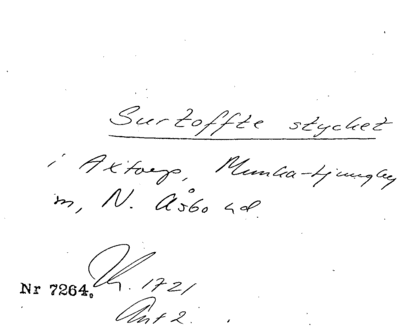 Surtoffte stycket
i Axtorp, Munka-Ljungby
sn, N. Åsbo hd.
Nr 7264. Kh. 1721
Ant 2.